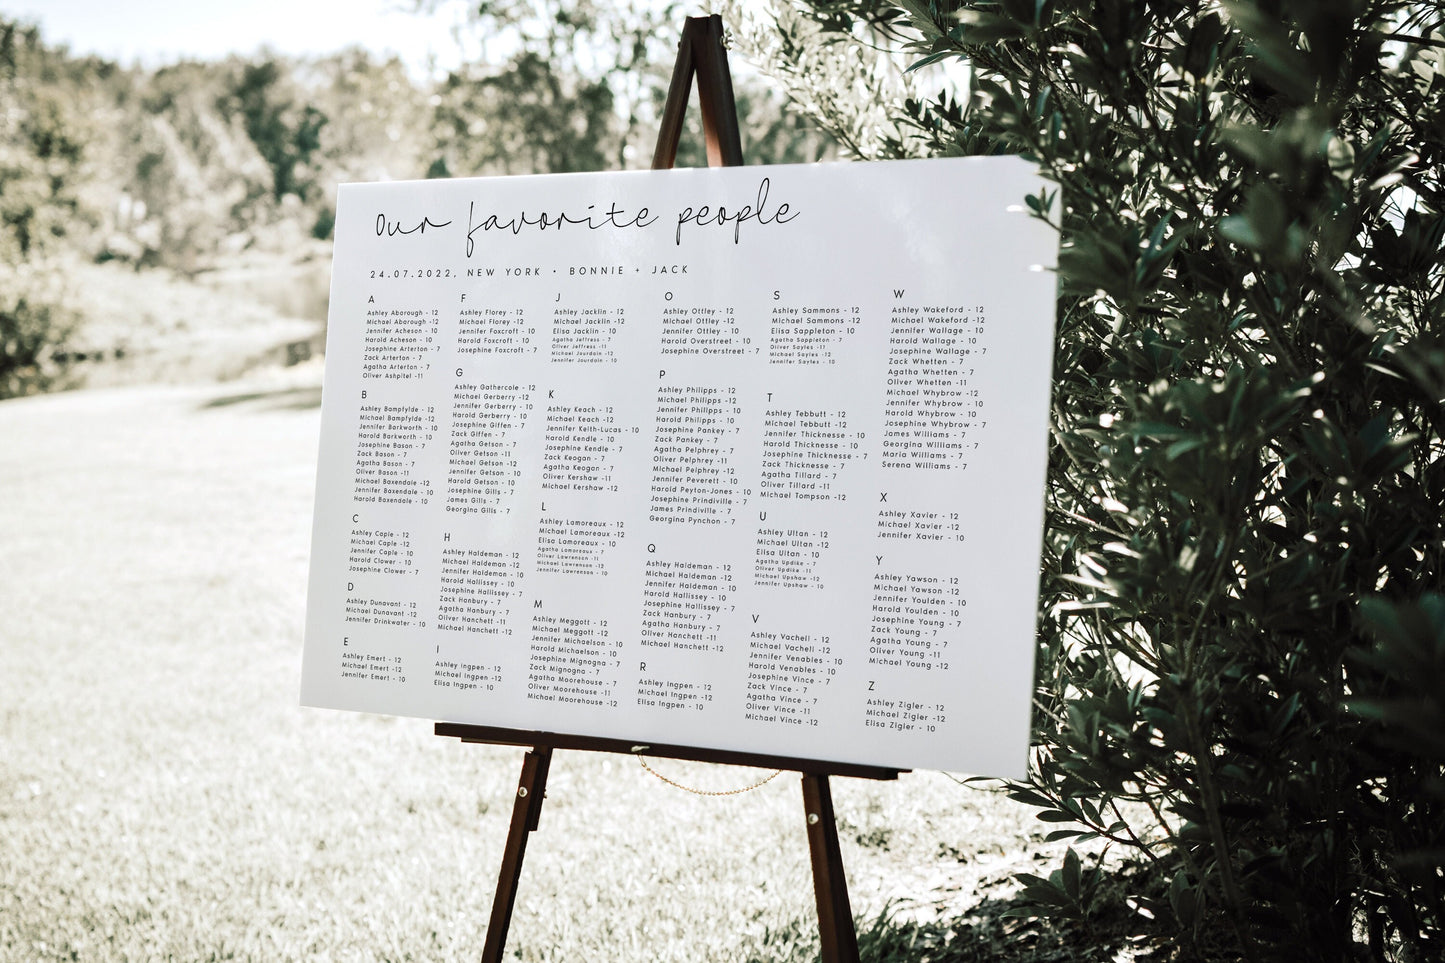 our favorite people
24.07.2022, NEW YORK • BONNIE + JACK
A
Ashley Aborough - 12
Michael Aborough -12
Jennifer Acheson - 10
Harold Acheson - 10
Josephine Arterton - 7
Zack Arterton - 7
Agatha Arterton - 7
Oliver Ashpitel -11
B
Ashley Bampfylde - 12
Michael Bampfylde -12
Jennifer Barkworth - 10
Harold Barkworth - 10
Josephine Bason - 7
Zack Bason - 7
Agatha Bason - 7
Oliver Bason -11
Michael Baxendale -12
Jennifer Baxendale - 10
Harold Baxendale - 10
C
Ashley Caple - 12
Michael Caple -12
Jennifer Caple - 10
Harold Clower - 10
Josephine Clower - 7
D
Ashley Dunavant - 12
Michael Dunavant -12
Jennifer Drinkwater - 10
E
Ashley Emert - 12
Michael Emert -12
Jennifer Emert - 10
F
Ashley Florey - 12
Michael Florey -12
Jennifer Foxcroft - 10
Harold Foxcroft - 10
Josephine Foxcroft - 7
G
Ashley Gathercole - 12
Michael Gerberry -12
Jennifer Gerberry - 10
Harold Gerberry - 10
Josephine Giffen - 7
Zack Giffen - 7
Agatha Getson - 7
Oliver Getson -11
Michael Getson -12
Jennifer Getson - 10
Harold Getson - 10
Josephine Gills - 7
James Gills - 7
Georgina Gills - 7
H
Ashley Haldeman - 12
Michael Haldeman -12
Jennifer Haldeman - 10
Harold Hallissey - 10
Josephine Hallissey - 7
Zack Hanbury - 7
Agatha Hanbury - 7
Oliver Hanchett -11
Michael Hanchett -12
I
Ashley Ingpen - 12
Michael Ingpen -12
Elisa Ingpen - 10
J
Ashley Jacklin - 12
Michael Jacklin -12
Elisa Jacklin - 10
Agatha Jeffress - 7
Oliver Jeffress -11
Michael Jourdain -12
Jennifer Jourdain - 10
K
Ashley Keach - 12
Michael Keach -12
Jennifer Keith-Lucas - 10
Harold Kendle - 10
Josephine Kendle - 7
Zack Keogan - 7
Agatha Keogan - 7
Oliver Kershaw -11
Michael Kershaw -12
L
Ashley Lamoreaux - 12
Michael Lamoreaux -12
Elisa Lamoreaux - 10
Agatha Lamoreaux - 7
Oliver Lawrenson -11
Michael Lawrenson -12
Jennifer Lawrenson - 10
M
Ashley Meggott - 12
Michael Meggott -12
Jennifer Michaelson - 10
Harold Michaelson - 10
Josephine Mignogna - 7
Zack Mignogna - 7
Agatha Moorehouse - 7
Oliver Moorehouse -11
Michael Moorehouse -12
O
Ashley Ottley - 12
Michael Ottley -12
Jennifer Ottley - 10
Harold Overstreet - 10
Josephine Overstreet - 7
P
Ashley Philipps - 12
Michael Philipps -12
Jennifer Philipps - 10
Harold Philipps - 10
Josephine Pankey - 7
Zack Pankey - 7
Agatha Pelphrey - 7
Oliver Pelphrey -11
Michael Pelphrey -12
Jennifer Peverett - 10
Harold Peyton-Jones - 10
Josephine Prindiville - 7
James Prindiville - 7
Georgina Pynchon - 7
Q
Ashley Haldeman - 12
Michael Haldeman -12
Jennifer Haldeman - 10
Harold Hallissey - 10
Josephine Hallissey - 7
Zack Hanbury - 7
Agatha Hanbury - 7
Oliver Hanchett -11
Michael Hanchett -12
R
Ashley Ingpen - 12
Michael Ingpen -12
Elisa Ingpen - 10
S
Ashley Sammons - 12
Michael Sammons -12
Elisa Sappleton - 10
Agatha Sappleton - 7
Oliver Sayles -11
Michael Sayles -12
Jennifer Sayles - 10
T
Ashley Tebbutt - 12
Michael Tebbutt -12
Jennifer Thicknesse - 10
Harold Thicknesse - 10
Josephine Thicknesse - 7
Zack Thicknesse - 7
Agatha Tillard - 7
Oliver Tillard -11
Michael Tompson -12
U
Ashley Ultan - 12
Michael Ultan -12
Elisa Ultan - 10
Agatha Updike - 7
Oliver Updike -11
Michael Upshaw -12
Jennifer Upshaw - 10
V
Ashley Vachell - 12
Michael Vachell -12
Jennifer Venables - 10
Harold Venables - 10
Josephine Vince - 7
Zack Vince - 7
Agatha Vince - 7
Oliver Vince -11
Michael Vince -12
W
Ashley Wakeford - 12
Michael Wakeford -12
Jennifer Wallage - 10
Harold Wallage - 10
Josephine Wallage - 7
Zack Whetten - 7
Agatha Whetten - 7
Oliver Whetten -11
Michael Whybrow -12
Jennifer Whybrow - 10
Harold Whybrow - 10
Josephine Whybrow - 7
James Williams - 7
Georgina Williams - 7
Maria Williams - 7
Serena Williams - 7
X
Ashley Xavier - 12
Michael Xavier -12
Jennifer Xavier - 10
Y
Ashley Yawson - 12
Michael Yawson -12
Jennifer Youlden - 10
Harold Youlden - 10
Josephine Young - 7
Zack Young - 7
Agatha Young - 7
Oliver Young -11
Michael Young -12
Z
Ashley Zigler - 12
Michael Zigler -12
Elisa Zigler - 10